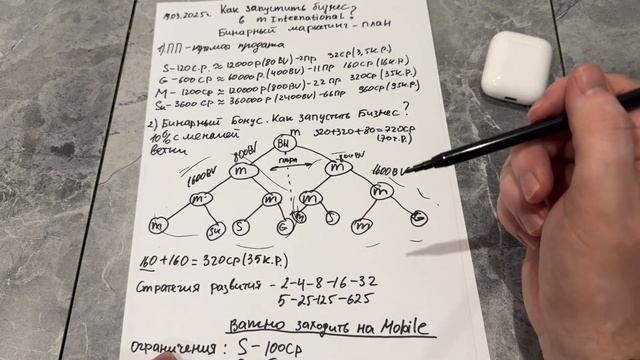 19.03.2025г Как запустить бизнес?
в m International!
Бинарный маркетинг-план
1) ПП - прямая продажа
S - 120 С.Р. ≈ 12000 Р (80 BV) - 2ПР 32СР (3,5 К.Р.)
G - 600 СР ≈ 60000 Р. (400BV) - 11ПР 160СР (16К.Р)
M - 1200СР ≈ 120000Р (800BV) - 22 ПР 320СР (35К.Р)
Su - 3600 СР ≈ 360000Р (2400BV) - 66ПР 960СР (95К.Р.)
2) Бинарный Бонус. Как запустить Бизнес?
10% с меньшей
ветки
m
320+320+80=720СР
(70 т.Р.)
ВЫ
800BV
пара
800BV
m
m
1600BV
1600BV
m
m
m
m
m
Su
S
G
m
S
m
G
160+160=320СР (35К.Р.)
Стратегия развития - 2-4-8-16-32
5-25-125-625
Важно заходить на Mobile
Ограничения: S - 100СР